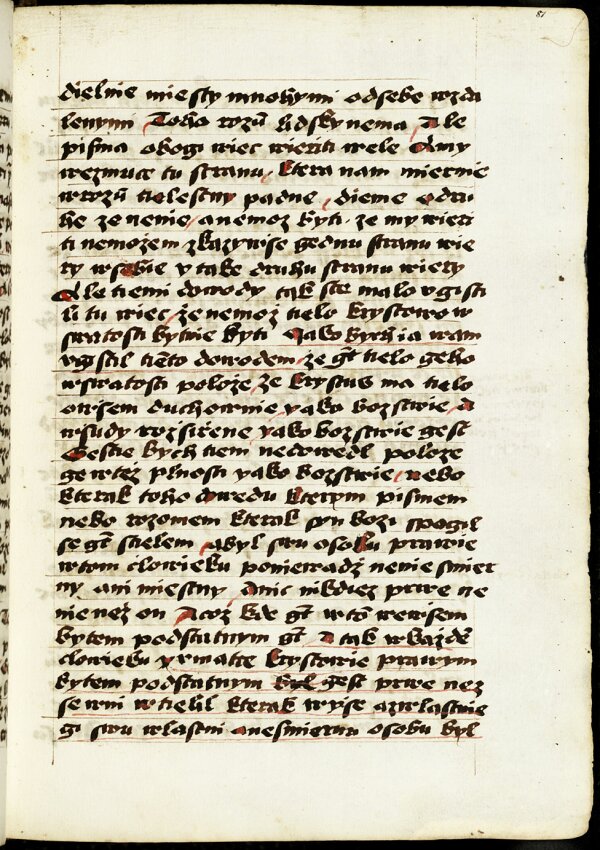 81
dielnie miesty mnohymi odsebe wzda
lenymi Toho rozū lidsky nema A le
pisma obogi wiec wieriti wele A my
wezmuce tu stranu ktera nam miernie
wrozū tielestny padne dieme o dru
he ze nenie a nemoz byti ze my wieri
ti nemozem zkazywsse gednu stranu wie
ry wsobie y take druhu stranu wiery
A le tiemi dowody tak ste malo vgisti
li tu wiec ze nemoz tielo krystowo w
swatosti bytnie byti Jako bych ia wam
vgistil tiēto dowodem ze gt tielo geho
wswatosti poloze ze krystus ma tielo
owssem duchownie yako bozstwie a
wsudy rozssirene yako bozstwie gest
Gestie bych tiem nedowedl poloze
ge wtez plnosti yako bozstwie nebo
kterak toho dowedu kterym pismem
nebo rozomem kterak syn bozi spogil
se gt stielem a byl swu osobu prawie
wtom clowieku poniewadz nenie smier
ny ani miestny A nic nikdiez prwe ne
nie nez on A coz kde gt wtō wewssem
bytem podstatnym gt A tak wkazdē
clowieku y wmatce krystowie prawym
bytem podstatnym gest prwe nez
se wni wtielil kterak wysse a zwlastnie
gi swu wlastni a nesmiernu osobu byl